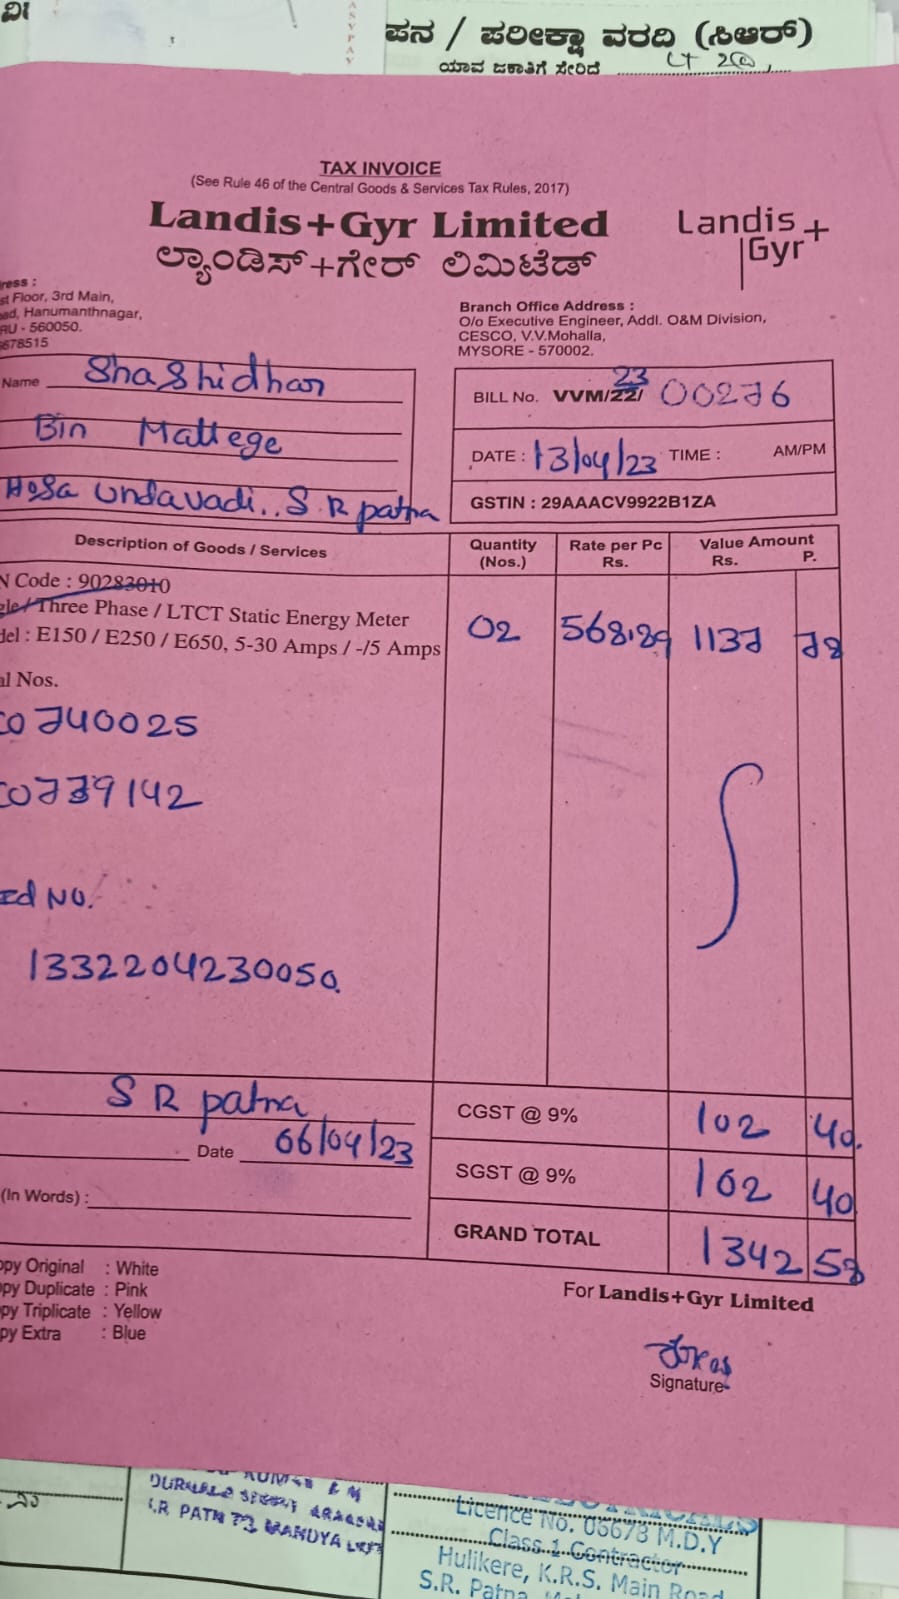 ವೀ
ಪನ / ಪರೀಕ್ಷಾ ವರದಿ (ಸಿಆರ್)
ಯಾವ ಜಕಾತಿಗೆ ಸೇರಿದೆ LT
TAX INVOICE
(See Rule 46 of the Central Goods & Services Tax Rules, 2017)
Landis+Gyr Limited
Landis+
Gyr
ಲ್ಯಾಂಡಿಸ್+ಗೇರ್ ಲಿಮಿಟೆಡ್
ress :
st Floor, 3rd Main,
ad, Hanumanthnagar,
RU - 560050.
678515
Branch Office Address :
O/o Executive Engineer, Addl. O&M Division,
CESCO, V.V.Mohalla,
MYSORE - 570002.
Name Shashidhar
Bin Mallege
Hosa Undavadi.. S R patna
BILL No. VVM/22/ 23 00276
DATE : 13/04/23 TIME : AM/PM
GSTIN : 29AAACV9922B1ZA
Description of Goods / Services Quantity (Nos.) Rate per Pc Rs. Value Amount Rs. P.
N Code : 90283010
gle / Three Phase / LTCT Static Energy Meter
del : E150 / E250 / E650, 5-30 Amps / -/5 Amps 02 568.89 1137 78
al Nos.
0740025
0739142
ed No.
1332204230050
S R patna
Date 06/04/23
(In Words) :
CGST @ 9% 102 40
SGST @ 9% 102 40
GRAND TOTAL 1342 58
opy Original : White
opy Duplicate : Pink
opy Triplicate : Yellow
opy Extra : Blue
For Landis+Gyr Limited
Signature
S.R PATN MANDYA
Licence No. 05678 M.D.Y
Class 1 Contractor
Hulikere, K.R.S. Main Road
S.R. Patna